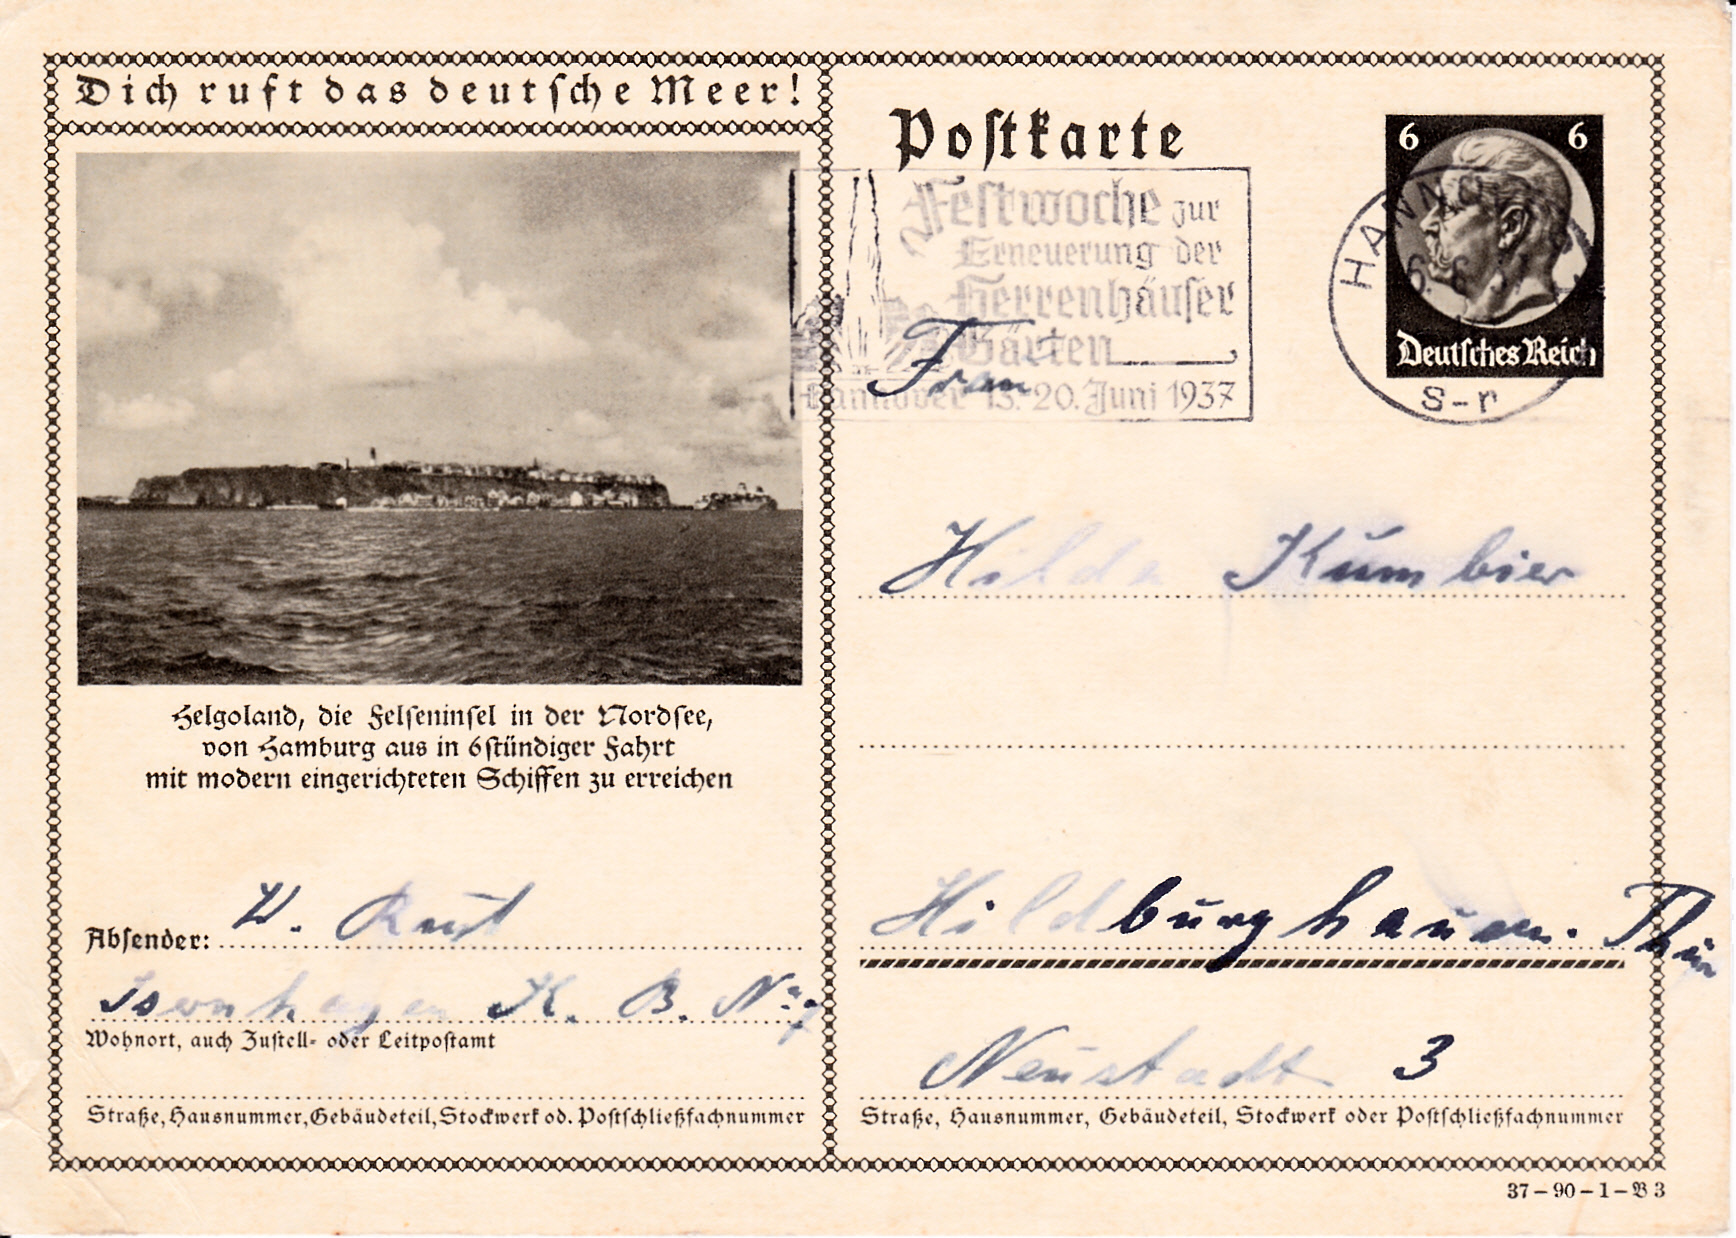 Dich ruft das deutsche Meer!
Helgoland, die Felseninsel in der Nordsee,
von Hamburg aus in 6stündiger Fahrt
mit modern eingerichteten Schiffen zu erreichen
Absender: W. Raut
Isernhagen K. B. No. 7
Wohnort, auch Zustell- oder Leitpostamt
Straße, Hausnummer, Gebäudeteil, Stockwerk od. Postschließfachnummer
Postkarte
Festwoche zur
Erneuerung der
Herrenhäuser
Gärten
Hannover 13.-20. Juni 1937
6 6
Deutsches Reich
HANNOVER
6. 6. 37
S-r
Frau
Hilda Kümbier
Hildburghausen. Thür
Neustadt 3
Straße, Hausnummer, Gebäudeteil, Stockwerk oder Postschließfachnummer
37-90-1-B3